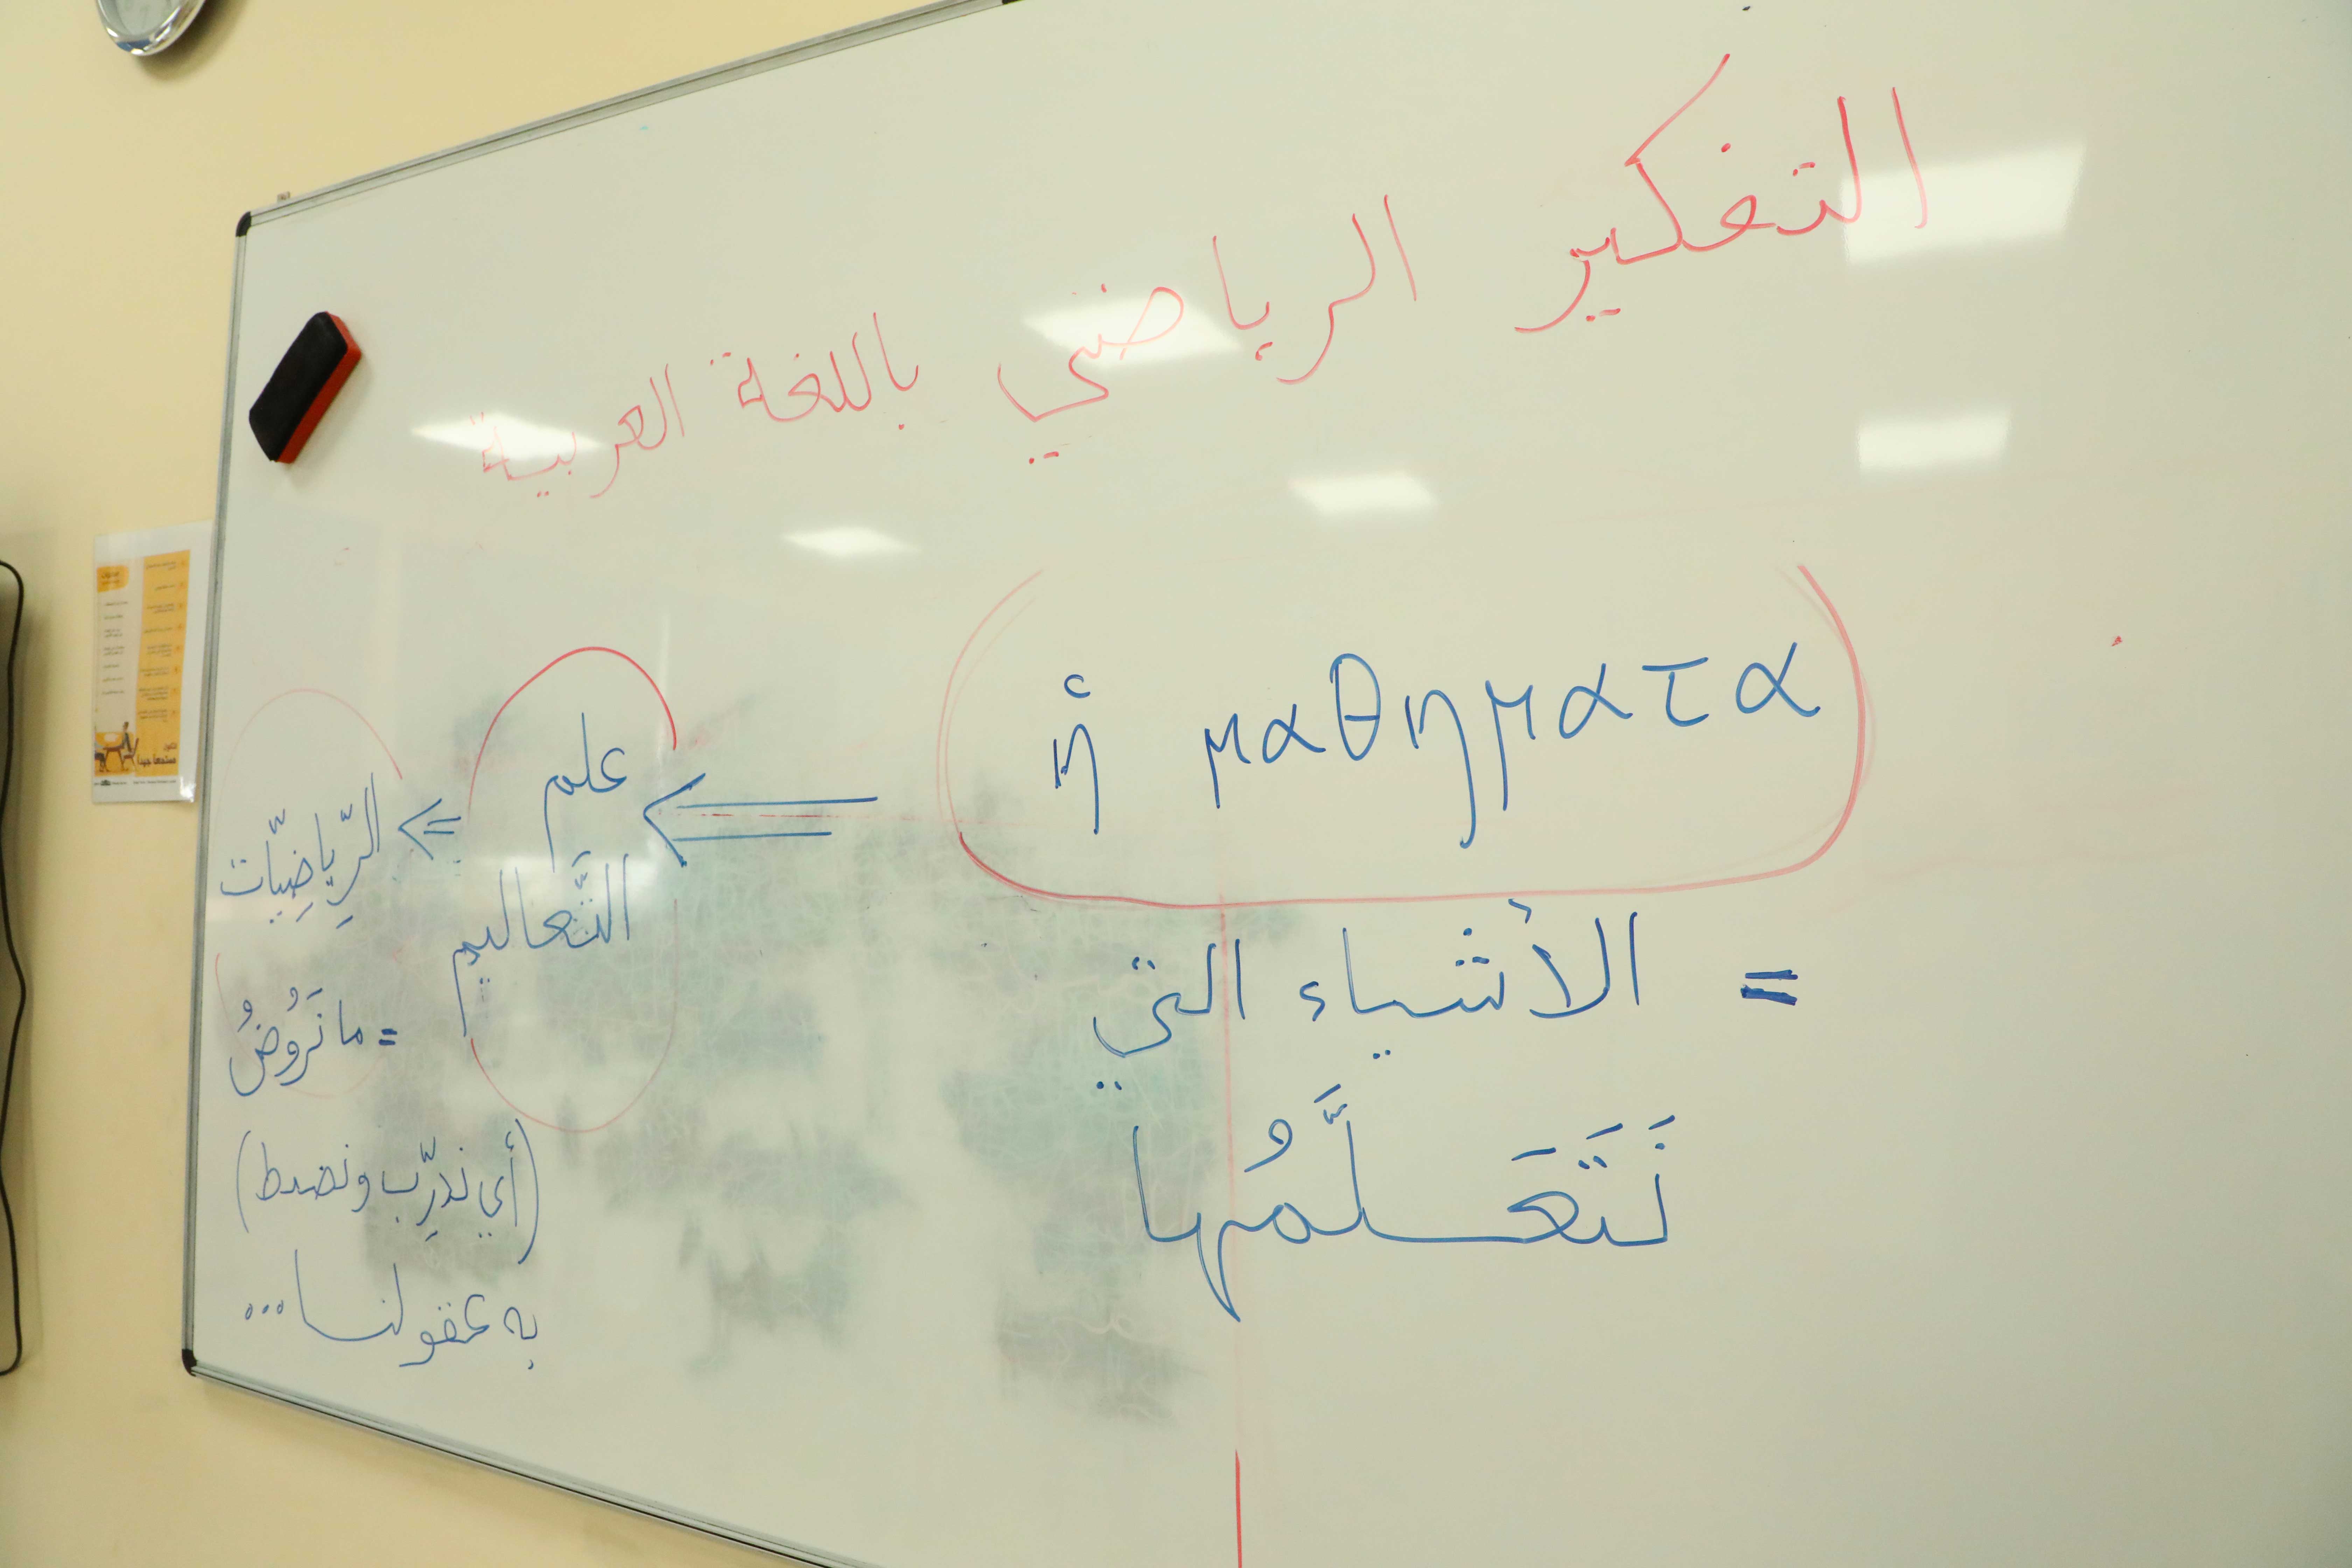 التفكير الرياضي باللغة العربية
ἡ μαθηματα
= الأشياء التي
نَتَعَلَّمُها
علم
التَّعاليم
الرِّياضِيّات
= ما نَرُوضُ
(أي ندرِّب ونضبط)
به عقولنا...
مستمعاً جيداً